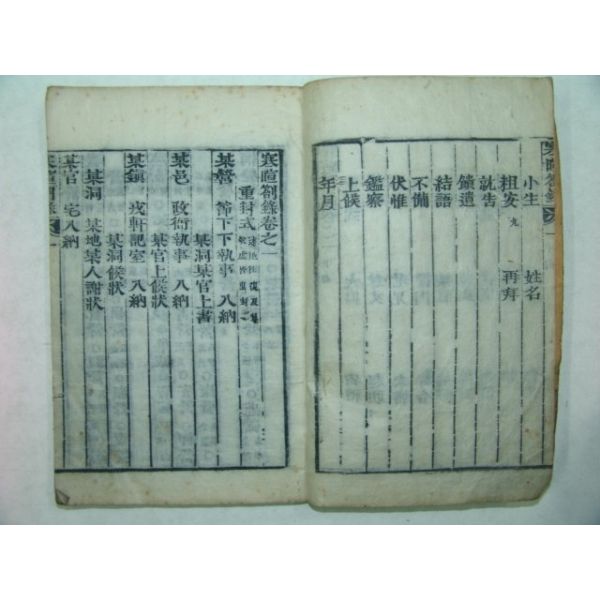 寒暄劄錄
小生 姓名
粗安 九 再拜
就告
饋遺
結語
不備
伏惟
鑑察
上候
年月
寒暄劄錄卷之一
重封式
某營 節下下執事 入納
某洞某官上書
某邑 政衙執事 入納
某官上候狀
某鎭 戎軒記室 入納
某洞候狀
某洞 某地某人謝狀
某官 宅入納